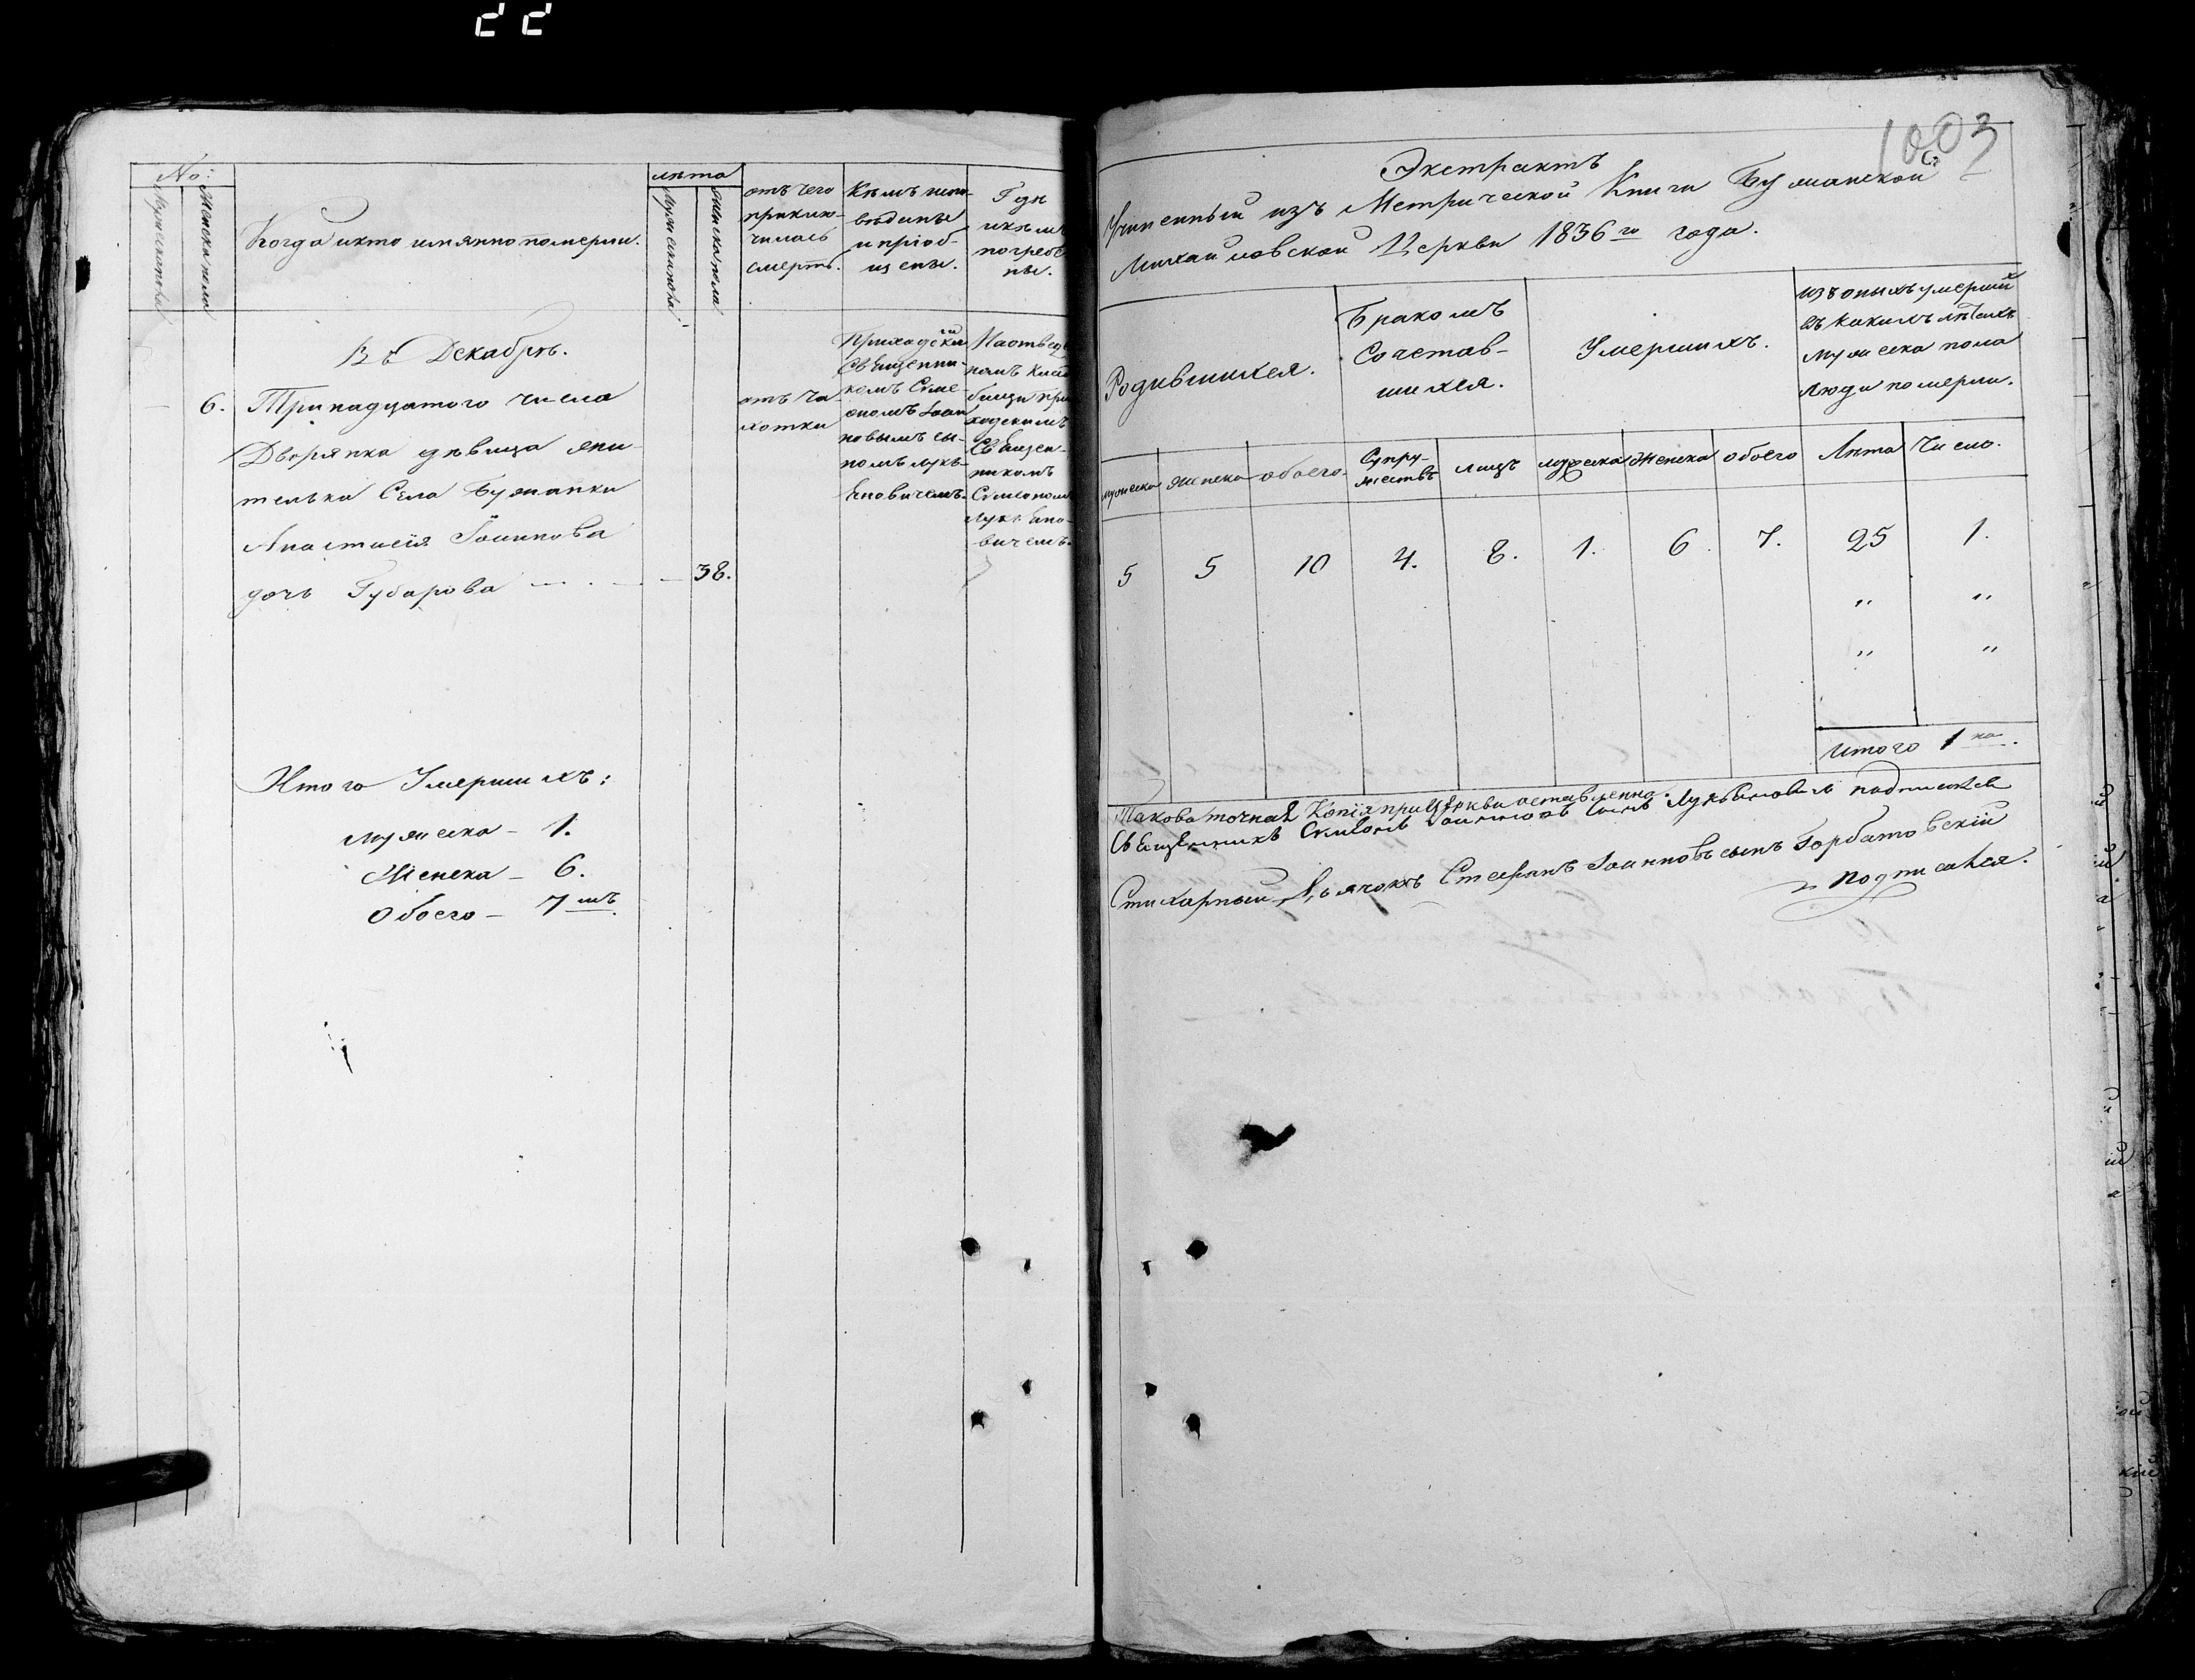 22
No:
Мужеска пола
Женска пола
Когда и кто имянно померли.
лѣта
Мужеска пола
Женска пола
отъ чего
приклю-
чилась
смерть.
Кѣмъ испо-
вѣданы
и пріоб-
щены.
Гдѣ
и кѣмъ
погребе
ны.
Въ Декабрѣ.
6. Тринадцатого числа
Дворянка дѣвица жи-
телька Села Бужанки
Анастасія Іоаннова
дочь Губарова
38.
отъ ча
хотки
Приходскій
Священни-
комъ Симе-
ономъ Іоан
новымъ сы-
номъ Лукь-
яновичемъ.
На отвед
номъ клад
бищи при
ходскимъ
Священ-
никомъ
Симеоном
Лукьяно-
вичемъ.
Итого Умершихъ:
мужеска – 1.
Женска – 6.
Обоего – 7 мъ
1003
Экстрактъ
Учиненный изъ Метрической Книги Бужанской
Михайловской Церкви 1836 го года.
Родившихся.
Бракомъ
Сочетав-
шихся.
Умершихъ.
изъ оныхъ умерших
въ какихъ лѣтахъ
мужеска пола
люди померли.
мужеска женска обоего Супру-
жествъ лицъ мужеска женска обоего Лѣта Число.
5 5 10 4. 8. 1. 6. 7. 25 1.
„ „
„ „
Итого 1 на.
Такова точная Копія при Церкви оставленна.
Священникъ Симеонъ Іоанновъ сынъ Лукьяновичъ подписался
Стихарный Дьячокъ Стефанъ Іоанновъ сынъ Горбатовскій
подписался.